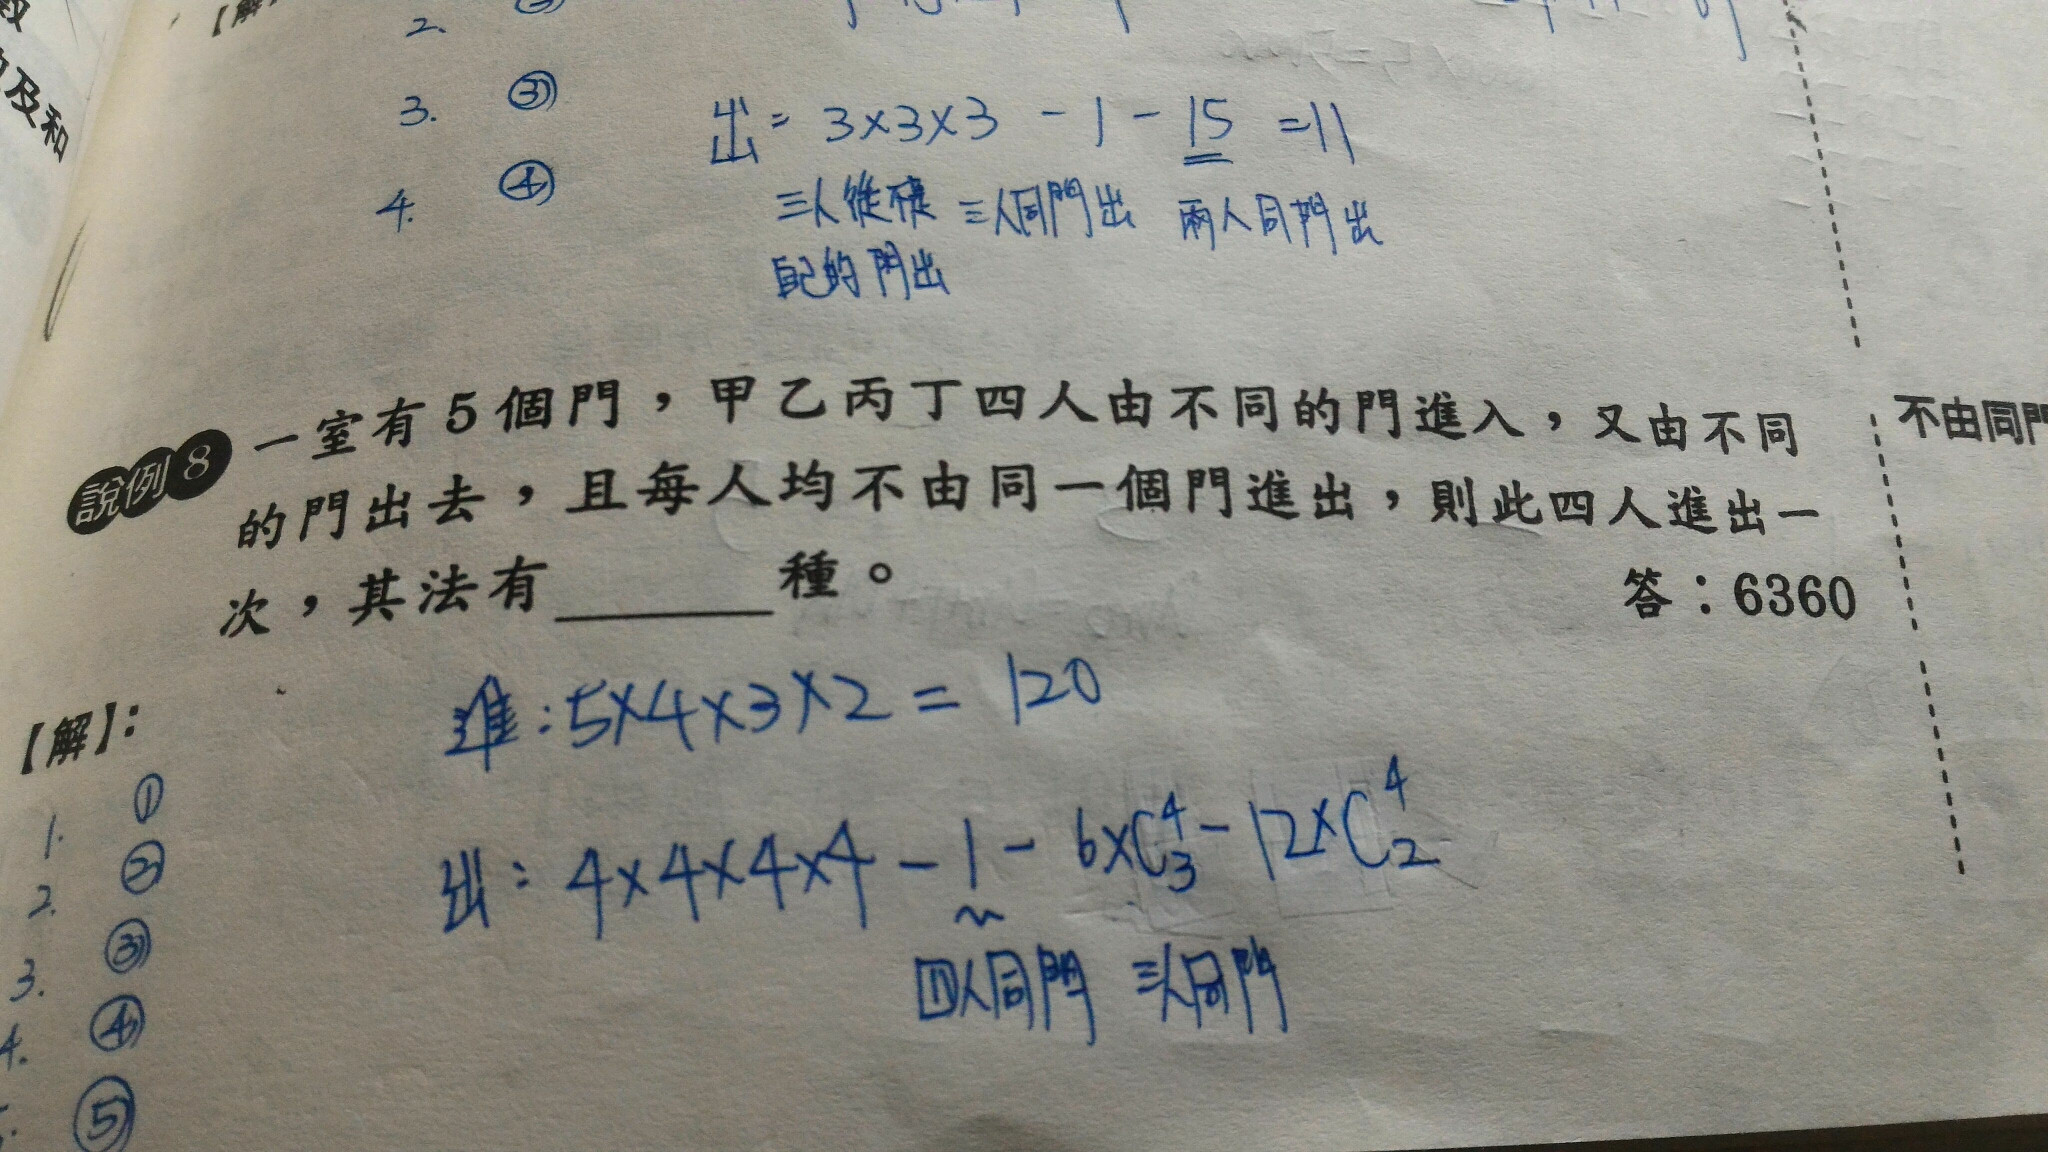 及和
【解
2. ②
3. ③
出= 3×3×3 -1-15 =11
4. ④
三人從 三人同門出 兩人同門出
自己的門出
說例8 一室有5個門，甲乙丙丁四人由不同的門進入，又由不同
的門出去，且每人均不由同一個門進出，則此四人進出一
次，其法有______種。
答：6360
不由同門
【解】：
進：5×4×3×2 = 120
1. ①
2. ②
出：4×4×4×4 - 1 - 6×C⁴₃ - 12×C⁴₂
3. ③
四人同門 三人同門
4. ④
⑤